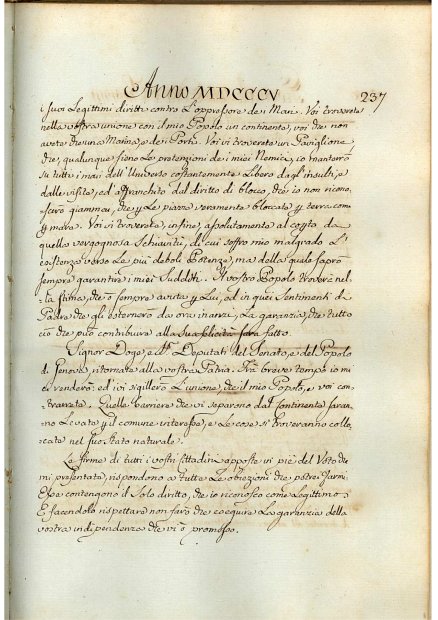 Anno MDCCCV
237
i suoi legittimi diritti contro l'oppressore de i Mari. Voi troverete
nella vostra unione con il mio Popolo un continente, voi che non
avete che una Marina, e dei Porti. Voi vi troverete un Paviglione,
che, qualunque sieno le pretenzioni de i miei Nemici, io manterrò
su tutti i mari dell'Universo costantemente libero dagl'insulti, e
dalle visite, ed affranchito dal diritto di blocco, che io non ricono-
scerò giammai, che p le piazze veramente bloccate p terra come
p mare. Voi vi troverete, infine, assolutamente al coperto da
quella vergognosa schiavitù, di cui soffro mio malgrado l'e-
sistenza verso le più deboli Potenze, ma della quale saprò
sempre garantire i miei sudditi. Il vostro Popolo troverà nel-
-la stima, che ò sempre avuta p lui, ed in quei sentimenti di
Padre che gli esternerò da ora innanzi, la garanzia, che tutto
ciò che può contribuire alla sua felicità sarà fatto.
Signor Doge, e SS. Deputati del Senato, e del Popolo
di Genova, ritornate alla vostra Patria. Frà breve tempo io mi
ci renderò, ed ivi sigillerò l'unione, che il mio Popolo, e voi con-
-trarrete. Quelle barriere che vi separono dal continente saran-
no levate p il comune interesse, e le cose si troveranno collo-
cate nel suo stato naturale.
Le firme di tutti i vostri Cittadini apposte in piè del Voto che
mi presentate, rispondono a tutte le obiezioni che potrei farmi.
Esse contengono il solo diritto, che io riconosco come legittimo:
E facendolo rispettare non farò che eseguire la garanzia della
vostra indipendenza che vi ò promesso.